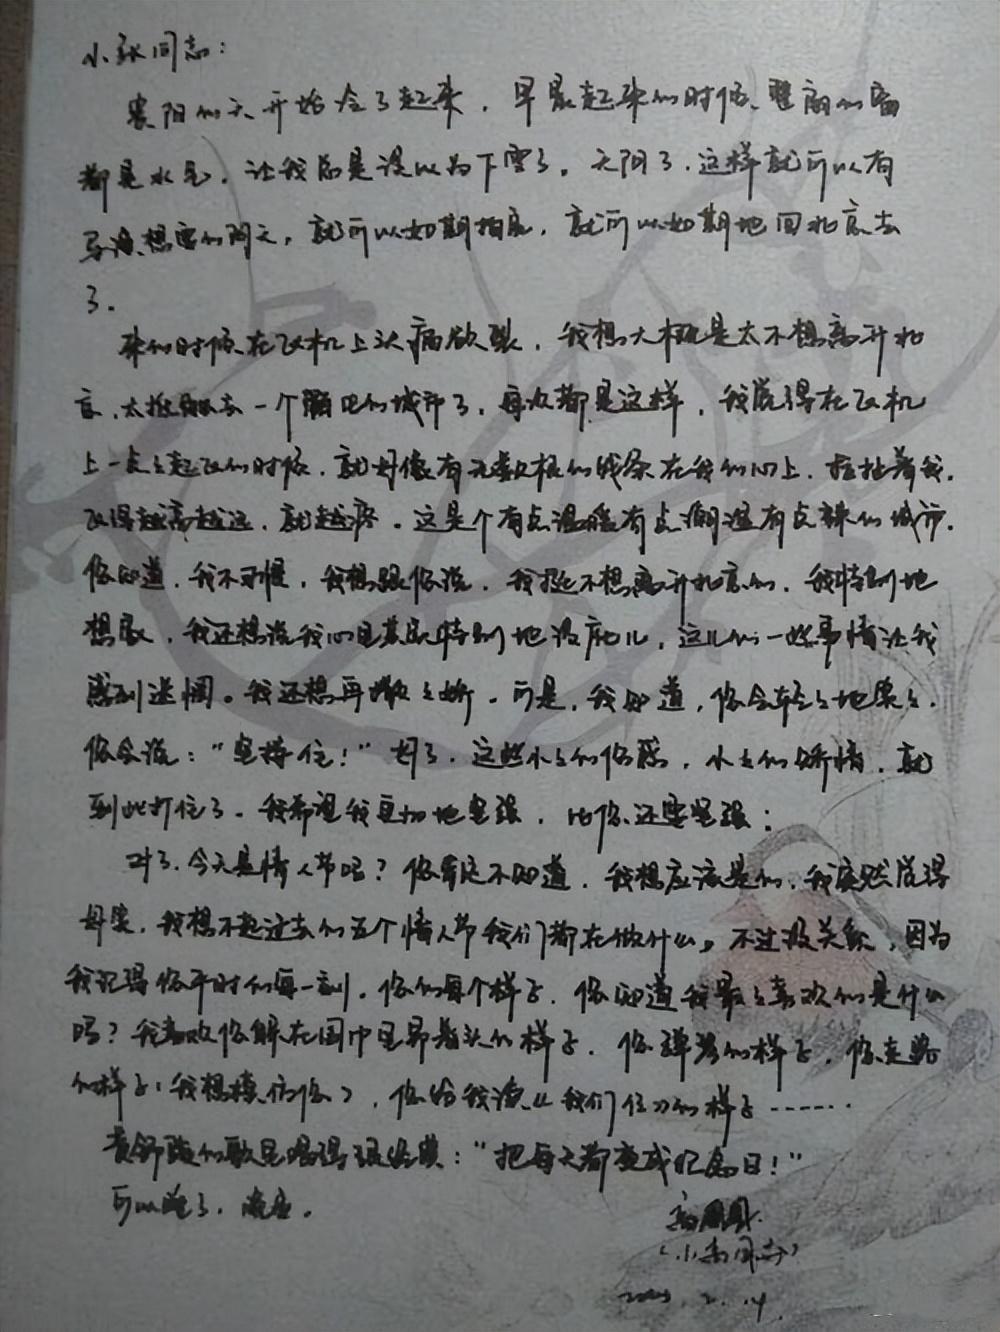 小张同志：
贵阳的天开始冷了起来，早晨起来的时候，里的窗
都是水气，让我总是误以为下雪了。天阴了，这样就可以有
导演想要的阴天，就可以如期拍完，就可以如期地回北京去
了。
来的时候在飞机上头痛欲裂，我想大概是太不想离开北
京，太去一个的城市了，每次都是这样，我觉得在飞机
上一点点起飞的时候，就好像有无数根的线条在我的心上，拉扯着我，
飞得越高越远，就越疼。这是个有点温暖有点潮湿有点辣的城市。
你知道，我不习惯，我想跟你说，我挺不想离开北京的，我特别地
想家，我还想说我心里其实特别地没底儿，这儿的一些事情让我
感到迷惘。我还想再撒撒娇。可是，我知道，你会轻轻地笑笑，
你会说：“坚持住！”好了，这些小小的伤感，小小的矫情，就
到此打住了。我希望我更加地坚强，比你还要坚强；
对了，今天是情人节吗？你肯定不知道，我想应该是的，我突然觉得
好笑，我想不起过去的五个情人节我们都在做什么，不过没关系，因为
我记得你平时的每一刻，你的每个样子，你知道我最最喜欢的是什么
吗？我喜欢你躲在围巾里昂着头的样子，你弹琴的样子，你走路
的样子（我想模仿你），你给我读《我们仨》的样子……
黄舒骏的歌里唱得很经典：“把每天都变成纪念日！”
可以睡了，晚安。
高圆圆
（小高同志）
2.14